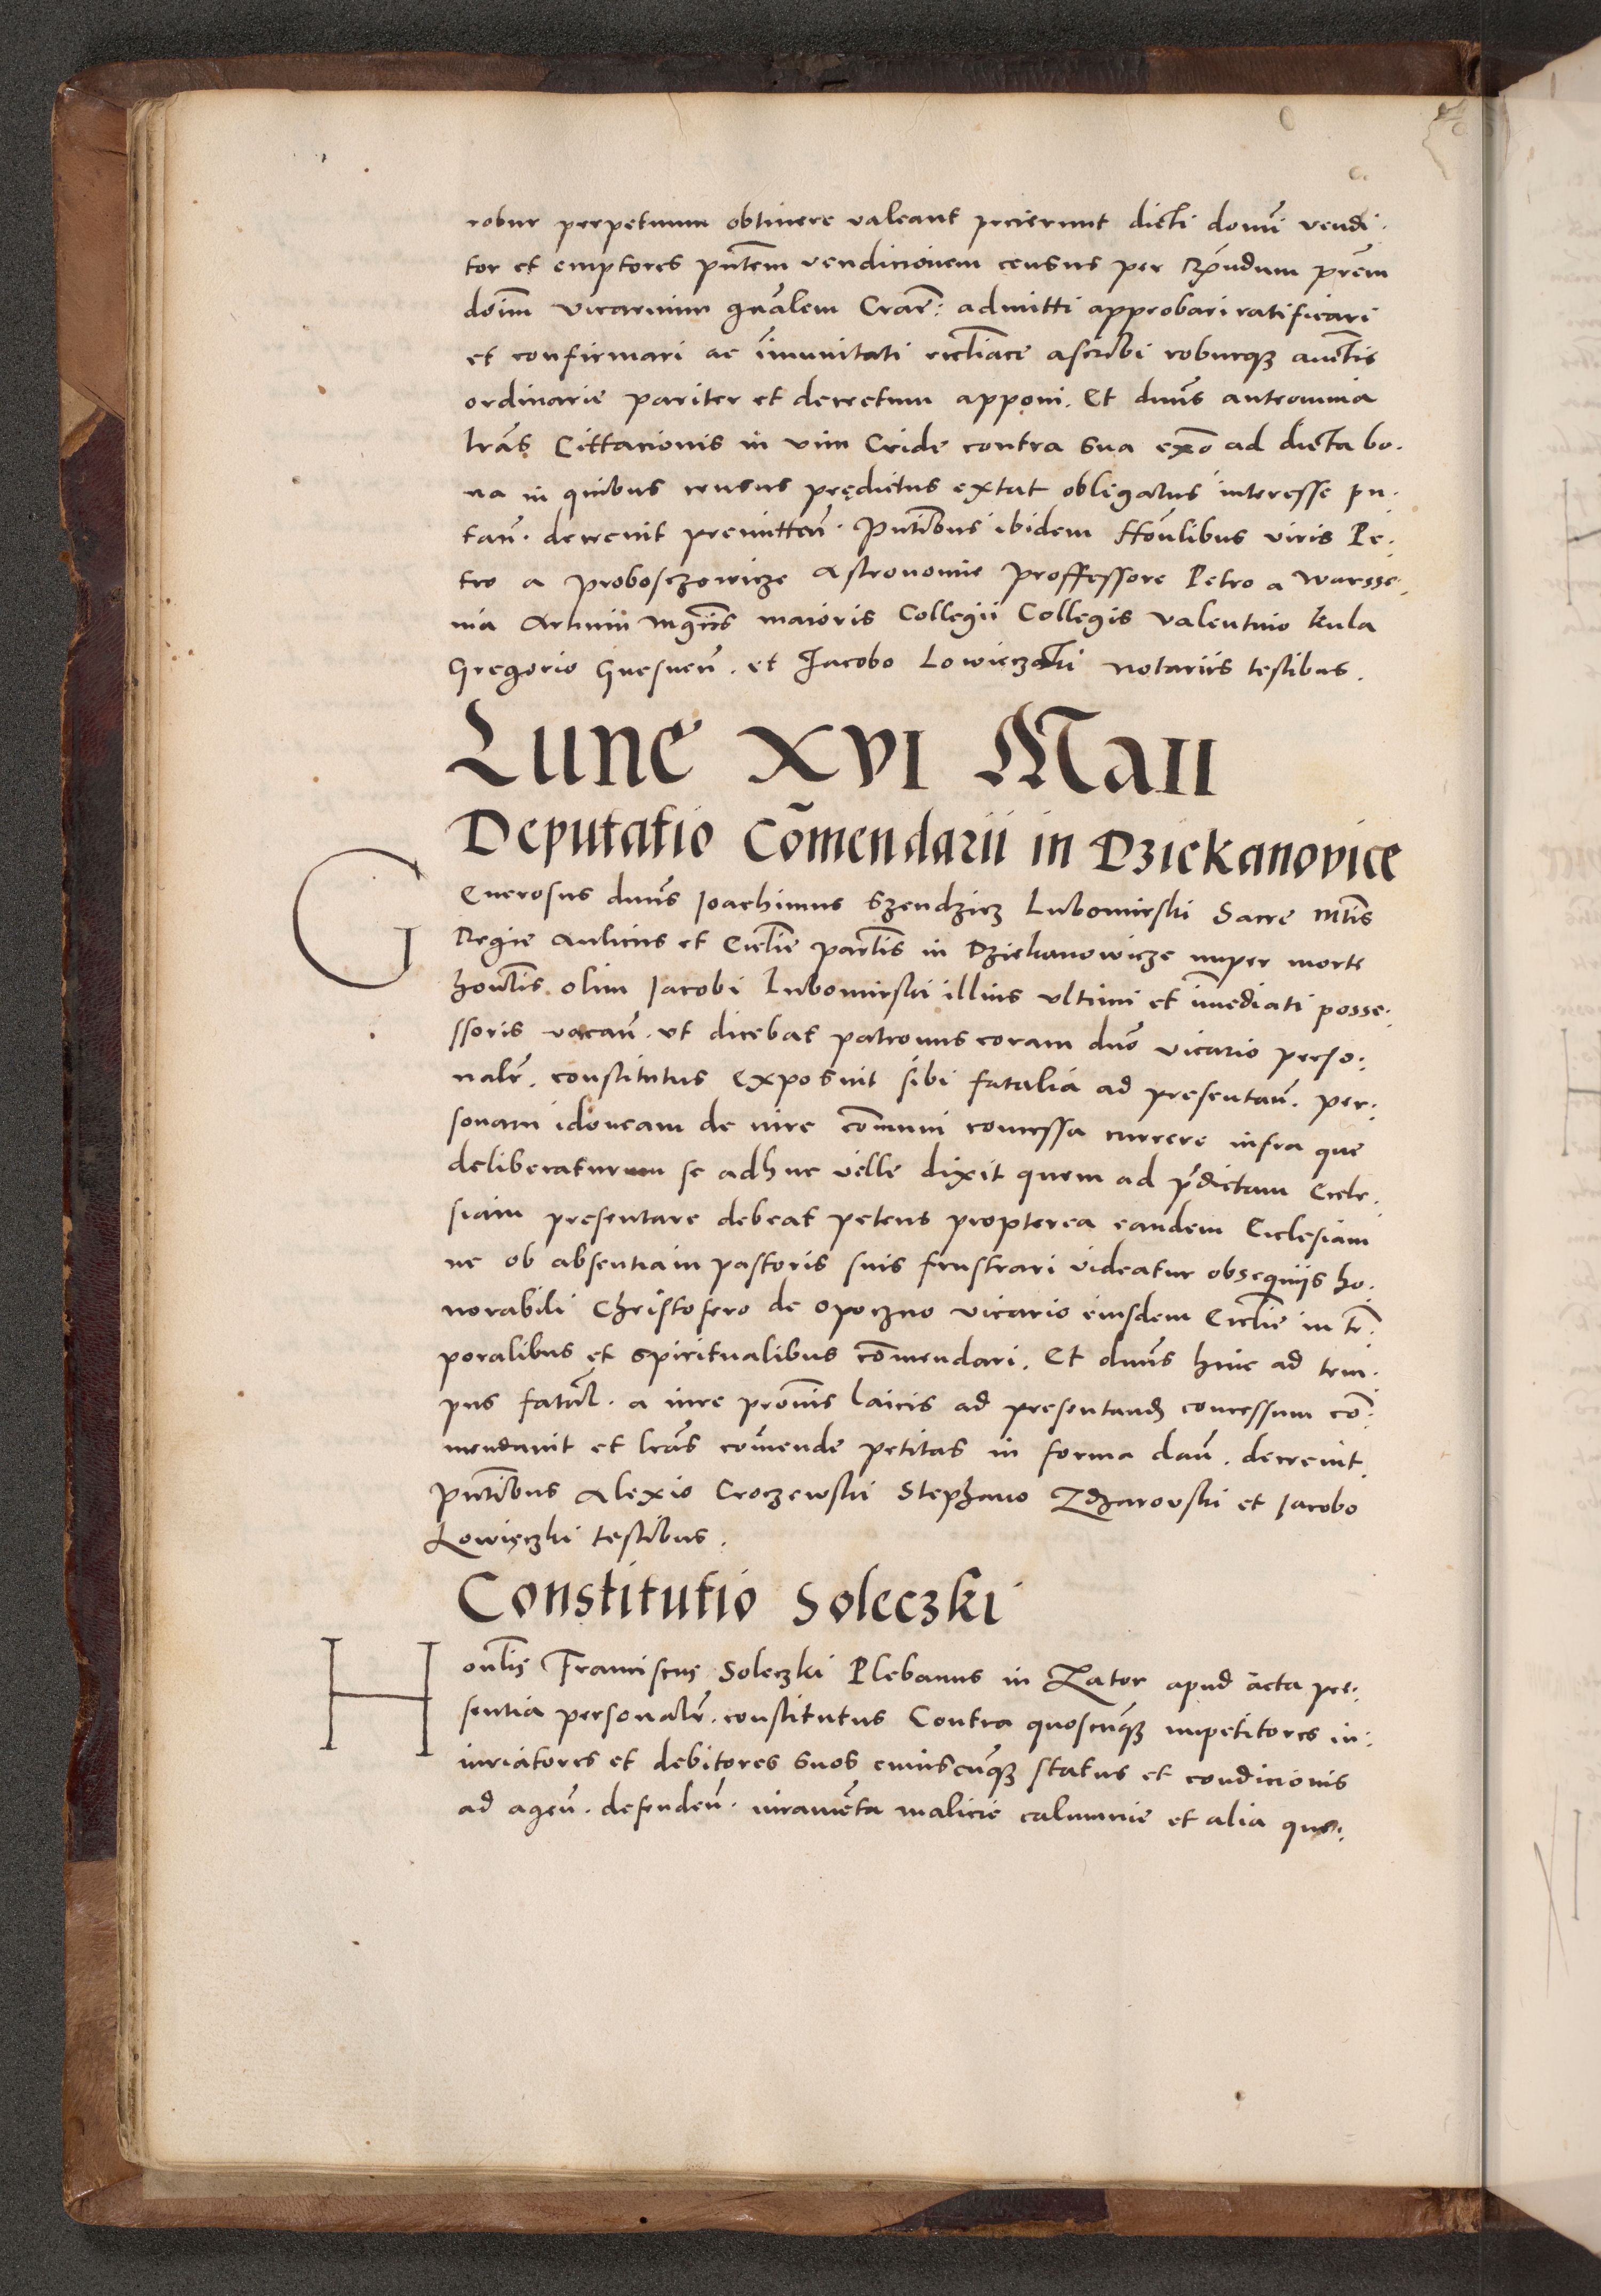 robur perpetuum obtinere valeant pecierunt dicti domi͞ vendi⸱
tor et emptores pn͞tem vendicionem census per R͞ndum pr͞em
do͞im vicarium gn͞alem Crac͞: admitti approbari ratificari
et confirmari ac i͞munitati eccl͞iace ascribi roburqꝫ auct͞is
ordinarie pariter et decretum apponi. Et dn͞us anteomnia
l͞ras Cittacionis in vim Cride contra sua ex͞o ad dicta bo⸱
na in quibus census prędictus extat obligatus interesse pu⸱
tan͞. decrevit premitten͞. Pn͞tibus ibidem ho͞nlibus viris Pe⸱
tro a Proboszczowicze Astronomie Proffessore Petro a Warsse⸱
via Artium mgr͞is maioris Collegii Collegis Valentino kula
Gregorio Gnesnen͞. et Jacobo Lowięczski notariis testibus.
Lune XVI Maii
Deputatio Co͞mendarii in Dziekanovice
Generosus dn͞us Joachimus Szendzicz Lubomirski Sacre M͞tis
Regie Aulicus et Eccl͞ie paro͞lis in Dziekanowicze nuper morte
ho͞nlis olim Jacobi Lubomirski illius ultimi et i͞mediati posse⸱
ssoris vacan͞. ut dicebat patronus coram dn͞o vicario perso⸱
nalr͞. constitutus exposuit sibi fatalia ad presentan͞. per⸱
sonam idoneam de iure co͞muni concessa currere infra que
deliberaturum se adhuc velle dixit quem ad p͞rdictam Eccle⸱
siam presentare debeat petens propterea eandem Ecclesiam
ne ob absentiam pastoris suis frustrari videatur obsequiis ho⸱
norabili Christofero de Opoczno vicario eiusdem Eccl͞ie in te͞⸱
poralibus et spiritualibus co͞mendari. Et dn͞us huic ad tem⸱
pus fatal͞. a iure pronis͞ laicis ad presentand͞ concessum co͞⸱
mendavit et l͞ras co͞mende petitas in forma dan͞. decrevit.
Pn͞tibus Alexio Croczewski Stephano Zdzarovski et Jacobo
Lowięczki testibus.
Constitutio Soleczki
Hon͞lis Franciscus Soleczki Plebanus in Zator apud acta pre⸱
sentia personalr͞. constitutus Contra quoscu͞qꝫ impetitores in⸱
iuriatores et debitores suos cuiuscu͞qꝫ status et condicionis
ad agen͞. defenden͞. iurame͞nta malicie calumnie et alia que⸱